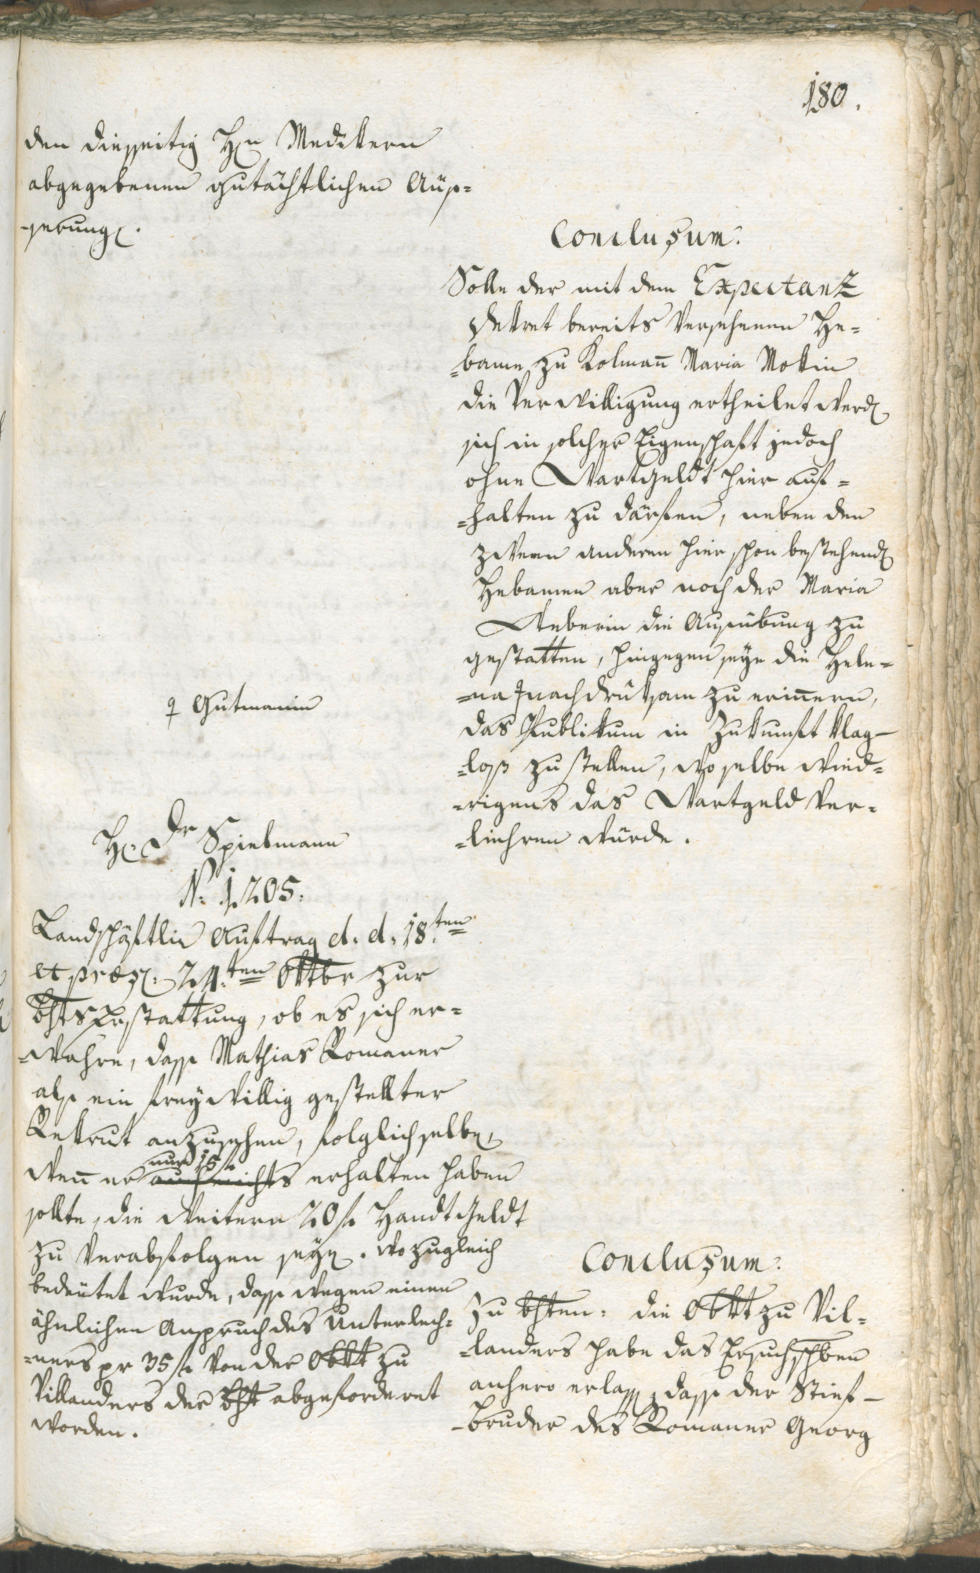 180.
den dießeitig H(en Medikern
abgegebenen gutächtlichen Aüß=
=serung(.
Conclusum:
Solle der mit dem Expectanz
Dekret bereits versehenen He=
=bame zu Kolman̄ Maria Mokin
die Verwilligung ertheilet werd(
sich in solcher Eigenschaft jedoch
ohne Wartgeldt hier auf=
=halten zu därfen, neben den
zween anderen hier schon bestehend(
Hebamen aber noch der Maria
Weberin die Ausübung zu
gestatten, hingegen seye die Hele=
=na ♀ nachdrüksam zu erin̄ern,
♀ Gutmanin
das Publikum in Zukunft klag=
=loß zu stellen, wo selbe wied=
=rigens das Wartgeld ver=
=liehren würde.
H(: Dr Spielmann
N: 1205:
Landschäftlie Auftrag d. d. 18ten
et præs(: 24ten Oktbr zur
bhts Erstattung, ob es sich er=
=wahre, dass Mathias Romaner
als ein freywillig gestellter
Rekrut anzusehen, folglich selbe(,
wen̄ er auch nichts erhalten haben
nur 15 f
sollte, die weitern 20 f HandtGeldt
zu verabfolgen seye(. wo zugleich
bedeutet wurde, dass wegen einen
ähnlichen Anspruch des Unterlech=
=ners pr 35 f von der Obkt zu
Villanders der bht abgeforderet
worden.
Conclusum:
Zu bhten: die Obkt zu Vil=
=landers habe das Ersuchschben
anhero erlass(, dass der Stief=
=bruder des Romaner Georg